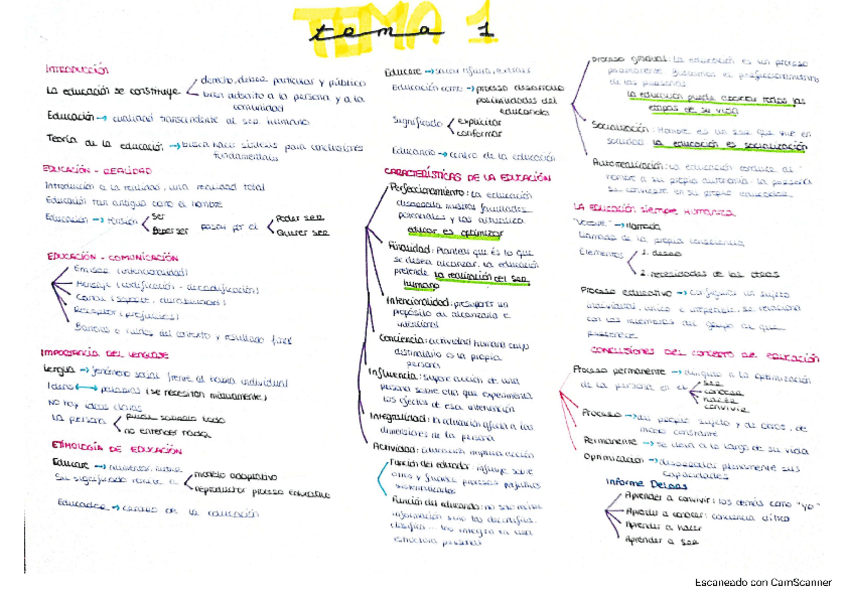 TEMA 1
tema 1
INTRODUCCIÓN
La educación se constituye
derecho, deber particular y público
bien adscrito a la persona y a la
comunidad
Educación → cualidad transcendente al ser humano
Teoría de la educación → busca bases sólidas para conclusiones
fundamentales
EDUCACIÓN - REALIDAD
Introducción a la realidad, una realidad total
Educación tan antigua como el hombre
Educación → tensión
Ser
Deber ser
pasar por el
Poder ser
Querer ser
EDUCACIÓN - COMUNICACIÓN
Emisor (intencionalidad)
Mensaje (codificación - decodificación)
Canal (
Receptor (prejuicios)
Barreras o ruidos del contexto y resultado final
IMPORTANCIA DEL LENGUAJE
Lengua → fenómeno social frente al habla individual
Ideas ↔ palabras (se necesitan mutuamente)
No hay ideas claras
La persona
puede saberlo todo
no entender nada
ETIMOLOGÍA DE EDUCACIÓN
Educare → alimentar, nutrir
Su significado refiere a
modelo adaptativo
reproductor proceso educativo
Educador → centro de la educación
Educere → sacar afuera, extraer
Educación como → proceso desarrollo
potencialidades del
educando
Significado
explicitar
conformar
Educando → centro de la educación
CARACTERÍSTICAS DE LA EDUCACIÓN
Perfeccionamiento: La educación
desarrolla nuestras facultades
potenciales y las
educar es optimizar
Finalidad: Plantear qué es lo que
se desea alcanzar. La educación
pretende la realización del ser
humano
Intencionalidad: presupone un
propósito al alcanzarla e
Conciencia: actividad humana cuyo
distintivo es la propia
persona
Influencia: supone acción de una
persona sobre otras que experimentan
los efectos de esa intervención
Integralidad: la educación afecta a las
dimensiones de la persona
Actividad: Educación implica acción
Función del educador: influye sobre
otros y
sistematizados
Función del educando: no solo recibe
información sino las decodifica,
clasifica... las integra en una
estructura personal
Proceso gradual: La educación es un proceso
permanente. Buscamos el perfeccionamiento
de las personas
La educación puede abarcar todas las
etapas de su vida
Socialización: Hombre es un ser que vive en
sociedad la educación es socialización
Autorrealización: La educación conduce al
hombre a su propia autonomía. La persona
se convierte en su propio educador
LA EDUCACIÓN SIEMPRE HUMANIZA
→ llamada
Llamada de la propia consciencia
Elementos
1. deseo
2. necesidades de los otros
Proceso educativo → configura un sujeto
individual, único e irrepetible, se relaciona
con los miembros del grupo al que
pertenece
CONCLUSIONES DEL CONCEPTO DE EDUCACIÓN
Proceso permanente → dirigido a la optimización
de la persona en el
ser
conocer
hacer
convivir
Proceso → del propio sujeto y de otros, de
modo constante
Permanente → se lleva a lo largo de su vida
Optimización → desarrollar plenamente sus
capacidades
Informe Delors
Aprender a convivir: los demás como "yo"
Aprender a conocer: conciencia crítica
Aprender a hacer
Aprender a ser
Escaneado con CamScanner